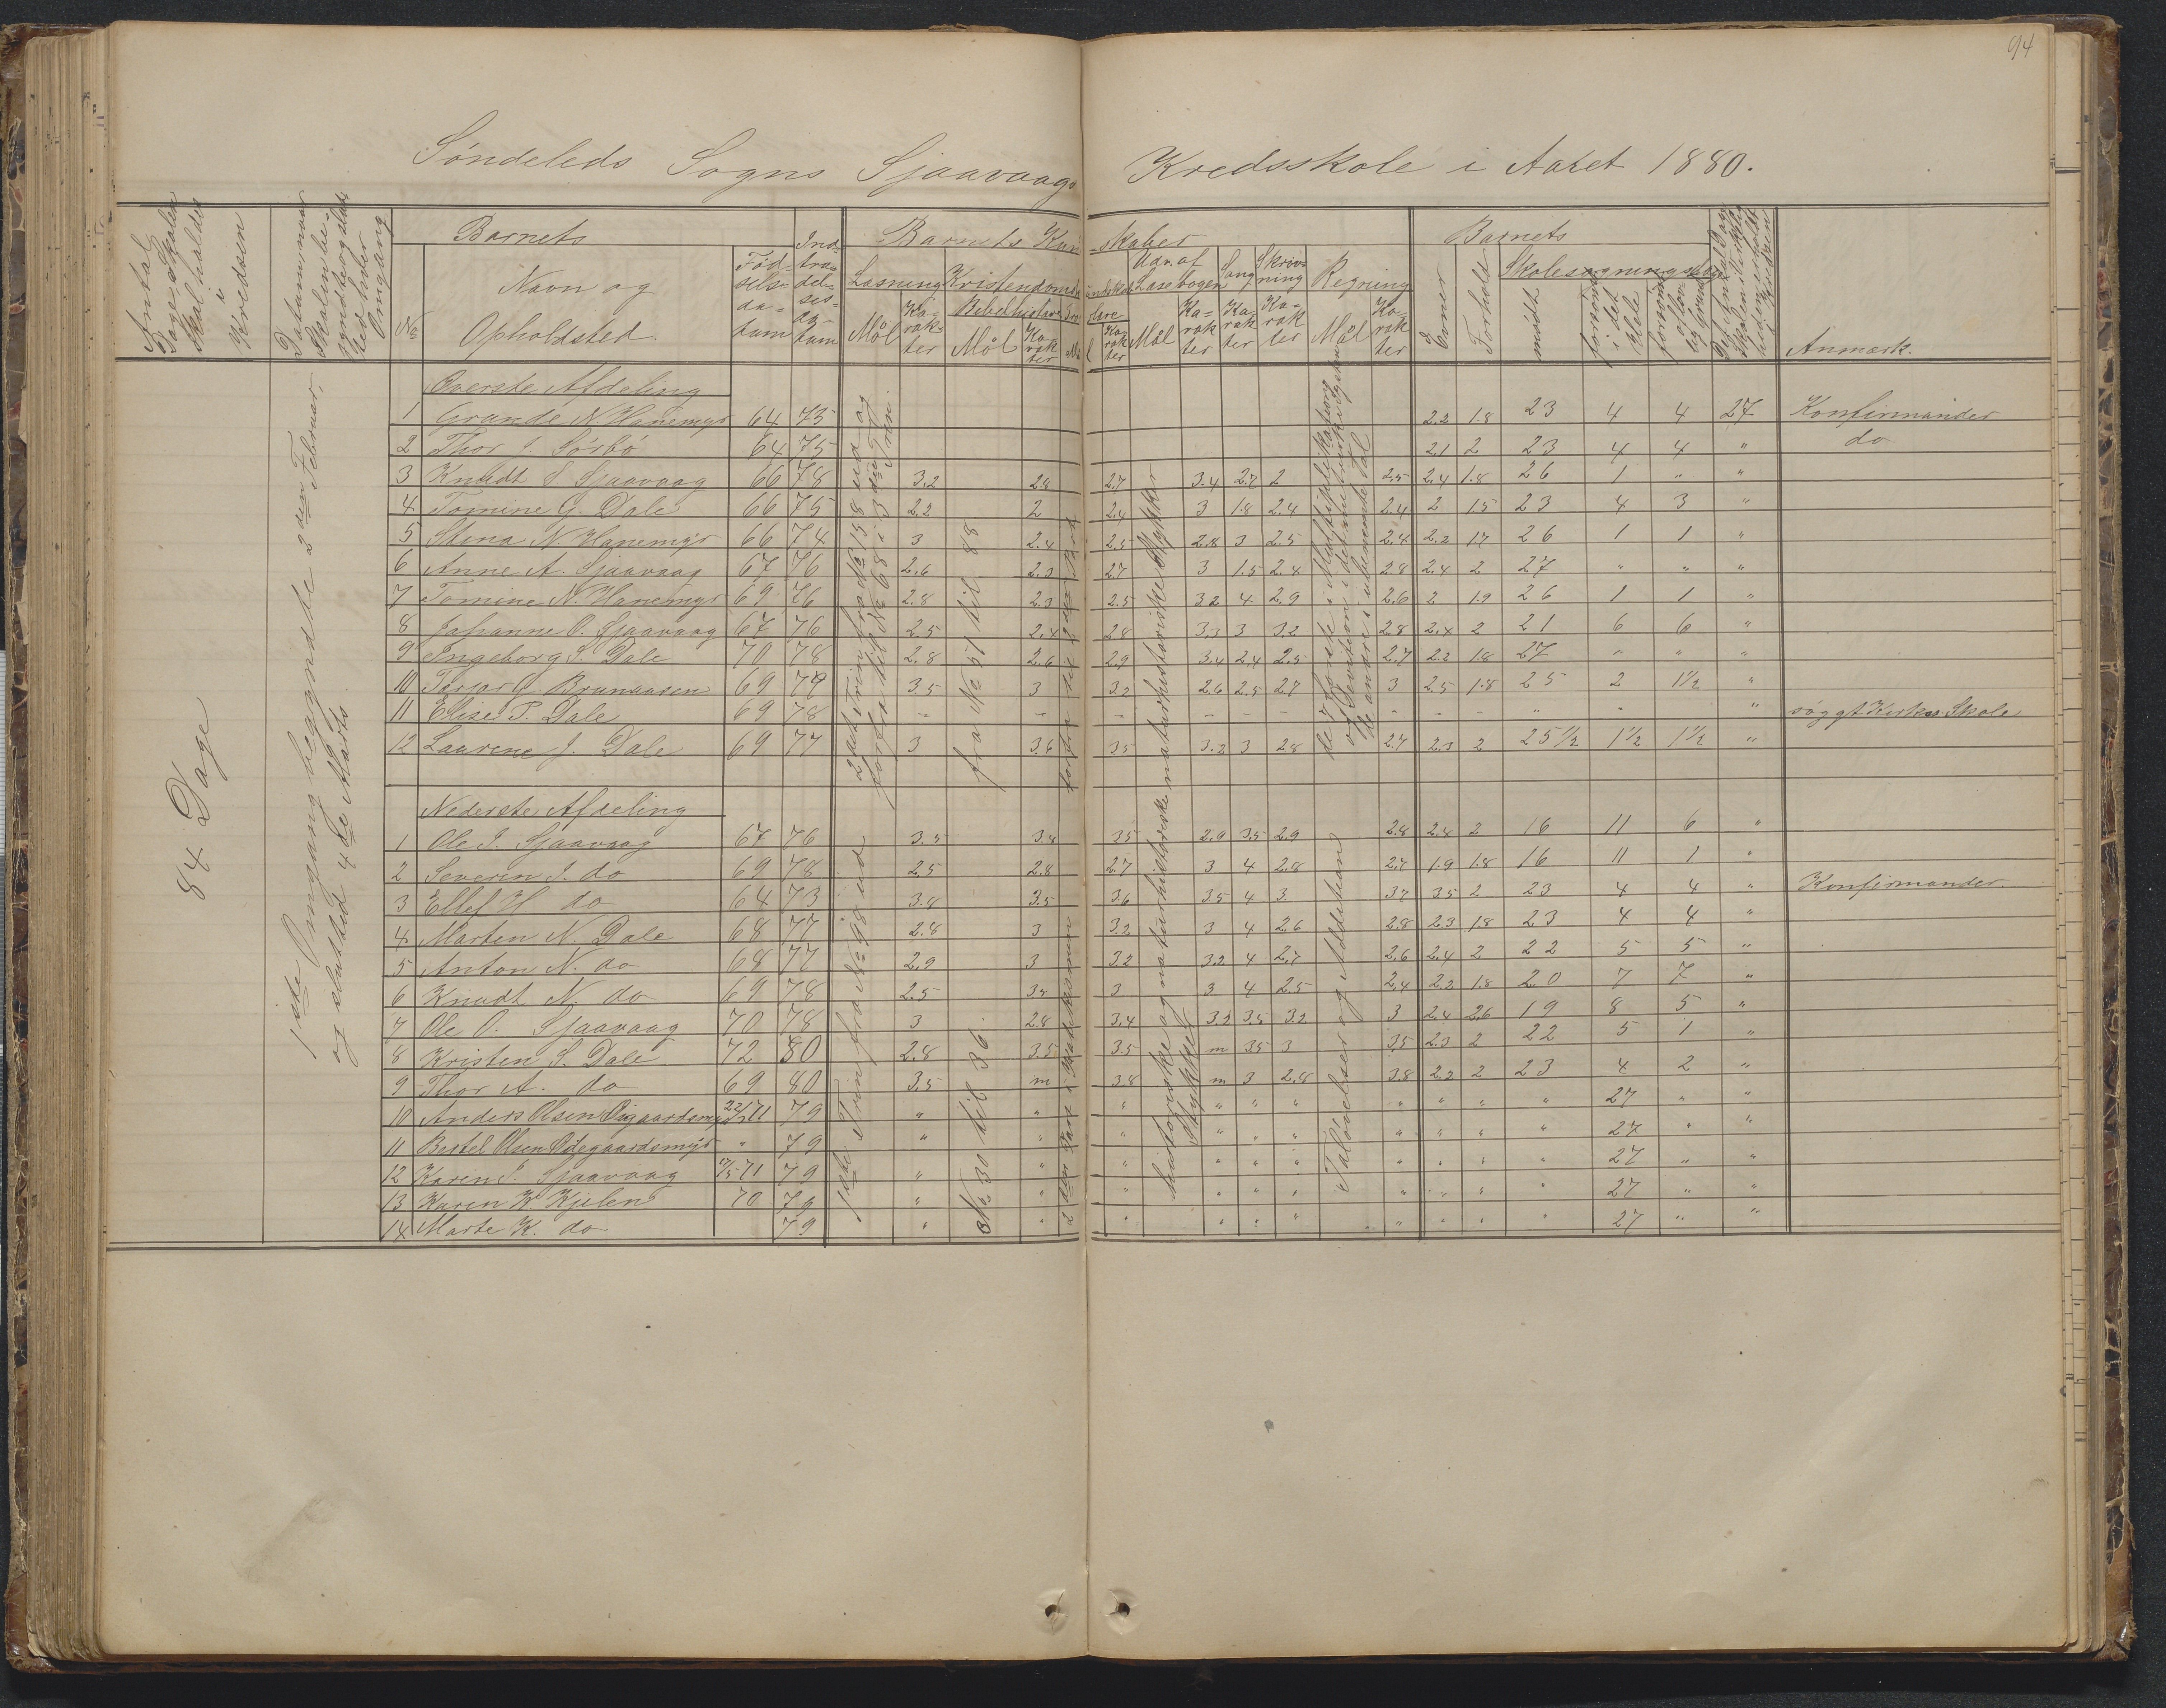 94
Søndeleds Sogns Sjaavaags Kredsskole i Aaret 1880.
Antal Dage Skolen skal holdes i Kredsen
Datum, naar Skolen begyndte og sluttede hver Omgang
Barnets
No
Navn og Opholdsted.
Fødselsdatum
Indtrædelsesdatum
Barnets Kundskaber
Læsning
Kristendomskundskab
Udv. af Læsebogen
Sang
Skrivning
Regning
Bibelhistorie
Mål Karakter Mål Karakter Karakter Mål Karakter Karakter Karakter Mål Karakter
Barnets
Evner
Forhold
Skolesøgningsdage
mødt
forsømte i det Hele
Anmærk.
84 Dage
1ste Omgang begyndte 2den Februar,
og sluttede 4de Marts
Øverste Afdeling
1 Grunde N Hanemyr 64 75 2.2 1.8 23 4 4 27 Konfirmander
2 Thor J Sørbø 64 75 2.1 2 23 4 4 " do
3 Knudt S Sjaavaag 66 78 3.2 2.8 2.7 3.4 2.7 2 2.5 2.4 1.8 26 1 " "
4 Tomine G. Dale 66 75 2.2 2 2.4 3 1.8 2.4 2.4 2 1.5 23 4 3 "
5 Stena N Hanemyr 66 74 3 2.4 2.5 2.8 3 2.5 2.4 2.2 1.7 26 1 1 "
6 Anne A. Sjaavaag 67 76 2.6 2.3 2.7 3 1.5 2.4 2.8 2.4 2 27 " " "
7 Tomine N. Hanemyr 69 76 2.8 2.3 2.5 3.2 4 2.9 2.6 2 1.9 26 1 1 "
8 Johanne O. Sjaavaag 67 76 2.5 2.4 2.8 3.3 3 3.2 2.8 2.4 2 21 6 6 "
9 Ingeborg S. Dale 70 78 2.8 2.6 2.9 3.4 2.4 2.5 2.7 2.2 1.8 27 " " "
10 Torjor J. Brunaasen 69 79 3.5 3 3.2 2.6 2.5 2.7 3 2.5 1.8 25 2 1½ "
11 Elise T. Dale 69 78 - - - - - - - - - " - " søggt Kirkes. Skole
12 Laurine J. Dale 69 77 3 3.6 3.5 3.2 3 2.8 2.7 2.3 2 25½ 1½ 1½ "
fra No 51 til 88.
Nederste Afdeling
1 Ole J. Sjaavaag 67 76 3.5 3.4 3.5 2.9 3.5 2.9 2.8 2.4 2 16 11 6 "
2 Severin J. do 69 78 2.5 2.8 2.7 3 4 2.8 2.7 1.9 1.8 16 11 1 "
3 Ellef H do 64 73 3.8 3.5 3.6 3.5 4 3 3.7 3.5 2 23 4 4 " Konfirmander.
4 Marten N. Dale 68 77 2.8 3 3.2 3 4 2.6 2.8 2.3 1.8 23 4 4 "
5 Anton N. do 68 77 2.9 3 3.2 3.2 4 2.7 2.6 2.4 2 22 5 5 "
6 Knudt N. do 69 78 2.5 3.5 3 3 4 2.5 2.4 2.2 1.8 20 7 7 "
7 Ole O. Sjaavaag 70 78 3 2.8 3.4 3.2 3.5 3.2 3 2.4 2.6 19 8 5 "
8 Kristen S. Dale 72 80 2.8 3.5 3.5 m 3.5 3 3.5 2.3 2 22 5 1 "
9 Thor A. do 69 80 3.5 m 3.8 m 3 2.8 3.8 2.2 2 23 4 2 "
10 Anders Olsen 71 79 " " " " " " " " " " 27 " "
11 Bertel Olsen Ødegaardsmyr " 79 " " " " " " " " " " 27 " "
12 Karen J. Sjaavaag 71 79 " " " " " " " " " " 27 " "
13 Karen K Kjelen 70 79 " " " " " " " " " " 27 " "
14 Marte K. do 79 " " " " " " " " " " 27 " "
No 30 til 36.
historiske og naturhistoriske Stykker
Taløvelser og Addition